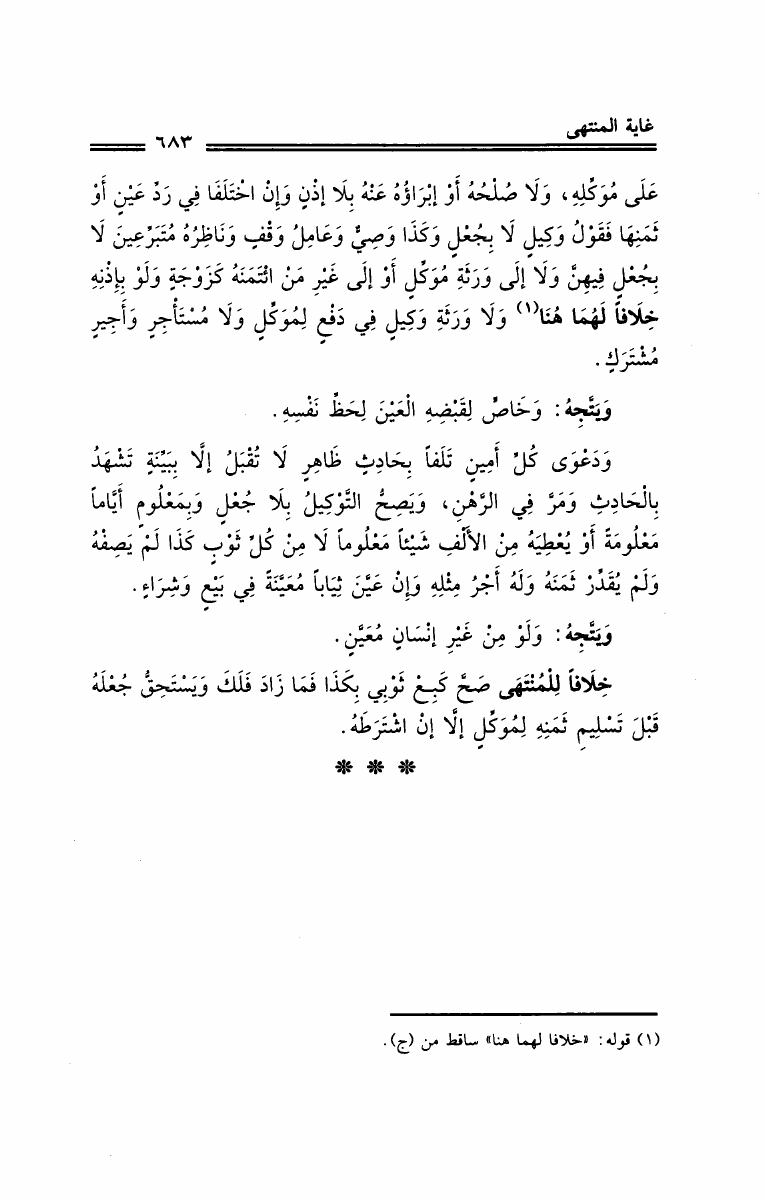 غاية المنتهى
٦٨٣
عَلَى مُوَكِّلِهِ، وَلَا صُلْحُهُ أَوْ إبْرَاؤُهُ عَنْهُ بِلَا إذْنٍ وَإِنْ اخْتَلَفَا فِي رَدِّ عَيْنٍ أَوْ
ثَمَنِهَا فَقَوْلُ وَكِيلٍ لَا بِجُعْلٍ وَكَذَا وَصِيٌّ وَعَامِلُ وَقْفٍ وَنَاظِرُهُ مُتَبَرِّعِينَ لَا
بِجُعْلٍ فِيهِنَّ وَلَا إلَى وَرَثَةِ مُوَكِّلٍ أَوْ إلَى غَيْرِ مَنْ ائْتَمَنَهُ كَزَوْجَةٍ وَلَوْ بِإِذْنِهِ
خِلَافاً لَهُمَا هُنَا(١) وَلَا وَرَثَةِ وَكِيلٍ فِي دَفْعٍ لِمُوَكِّلٍ وَلَا مُسْتَأْجِرٍ وَأَجِيرٍ
مُشْتَرَكٍ.
وَيَتَّجِهُ: وَخَاصٍّ لِقَبْضِهِ الْعَيْنَ لِحَظِّ نَفْسِهِ.
وَدَعْوَى كُلِّ أَمِينٍ تَلَفاً بِحَادِثٍ ظَاهِرٍ لَا تُقْبَلُ إلَّا بِبَيِّنَةٍ تَشْهَدُ
بِالْحَادِثِ وَمَرَّ فِي الرَّهْنِ، وَيَصِحُّ التَّوْكِيلُ بِلَا جُعْلٍ وَبِمَعْلُومٍ أَيَّاماً
مَعْلُومَةً أَوْ يُعْطِيَهُ مِنْ الأَلْفِ شَيْئاً مَعْلُوماً لَا مِنْ كُلِّ ثَوْبٍ كَذَا لَمْ يَصِفْهُ
وَلَمْ يُقَدِّرْ ثَمَنَهُ وَلَهُ أَجْرُ مِثْلِهِ وَإِنْ عَيَّنَ ثِيَاباً مُعَيَّنَةً فِي بَيْعٍ وَشِرَاءٍ.
وَيَتَّجِهُ: وَلَوْ مِنْ غَيْرِ إنْسَانٍ مُعَيَّنٍ.
خِلَافاً لِلْمُنْتَهَى صَحَّ كَبِعْ ثَوْبِي بِكَذَا فَمَا زَادَ فَلَكَ وَيَسْتَحِقُّ جُعْلَهُ
قَبْلَ تَسْلِيمِ ثَمَنِهِ لِمُوَكِّلٍ إلَّا إنْ اشْتَرَطَهُ.
* * *
(١) قوله: «خلافا لهما هنا» ساقط من (ج).